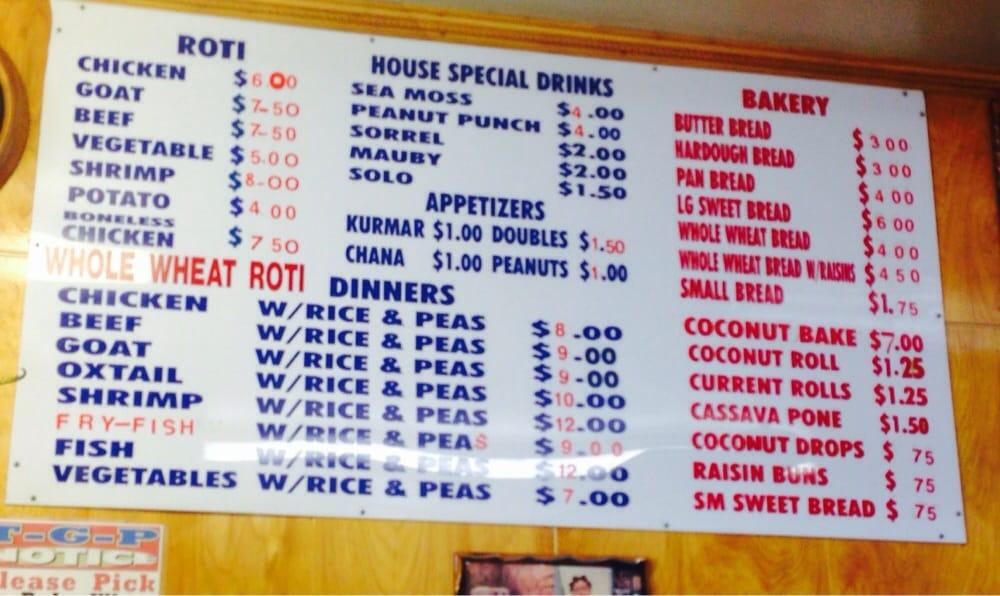 ROTI
CHICKEN $6.00
GOAT $7-50
BEEF $7-50
VEGETABLE $5.00
SHRIMP $8-00
POTATO $4 00
BONELESS
CHICKEN $7 50
WHOLE WHEAT ROTI
HOUSE SPECIAL DRINKS
SEA MOSS $4.00
PEANUT PUNCH $4.00
SORREL $2.00
MAUBY $2.00
SOLO $1.50
APPETIZERS
KURMAR $1.00 DOUBLES $1.50
CHANA $1.00 PEANUTS $1.00
DINNERS
CHICKEN W/RICE & PEAS $8.00
BEEF W/RICE & PEAS $9-00
GOAT W/RICE & PEAS $9-00
OXTAIL W/RICE & PEAS $10.00
SHRIMP W/RICE & PEAS $12.00
FRY-FISH W/RICE & PEAS $9.00
FISH W/RICE & PEAS $12.00
VEGETABLES W/RICE & PEAS $7.00
BAKERY
BUTTER BREAD $3 00
HARDOUGH BREAD $3 00
PAN BREAD $4 00
LG SWEET BREAD $6 00
WHOLE WHEAT BREAD $4 00
WHOLE WHEAT BREAD W/RAISINS $4 50
SMALL BREAD $1.75
COCONUT BAKE $7.00
COCONUT ROLL $1.25
CURRENT ROLLS $1.25
CASSAVA PONE $1.50
COCONUT DROPS $ 75
RAISIN BUNS $ 75
SM SWEET BREAD $ 75
T-G-P
Pick